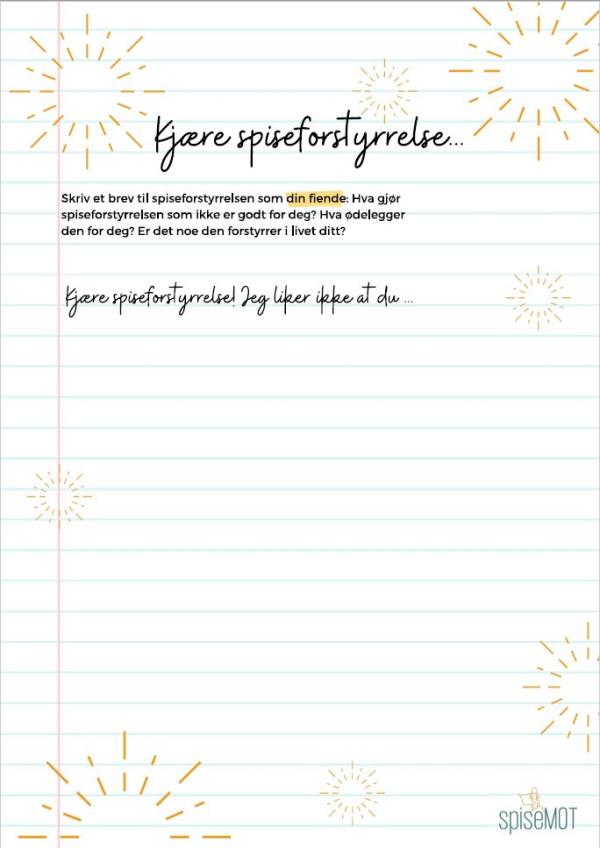 Kjære spiseforstyrrelse...
Skriv et brev til spiseforstyrrelsen som din fiende: Hva gjør
spiseforstyrrelsen som ikke er godt for deg? Hva ødelegger
den for deg? Er det noe den forstyrrer i livet ditt?
Kjære spiseforstyrrelse! Jeg liker ikke at du ...
spiseMOT